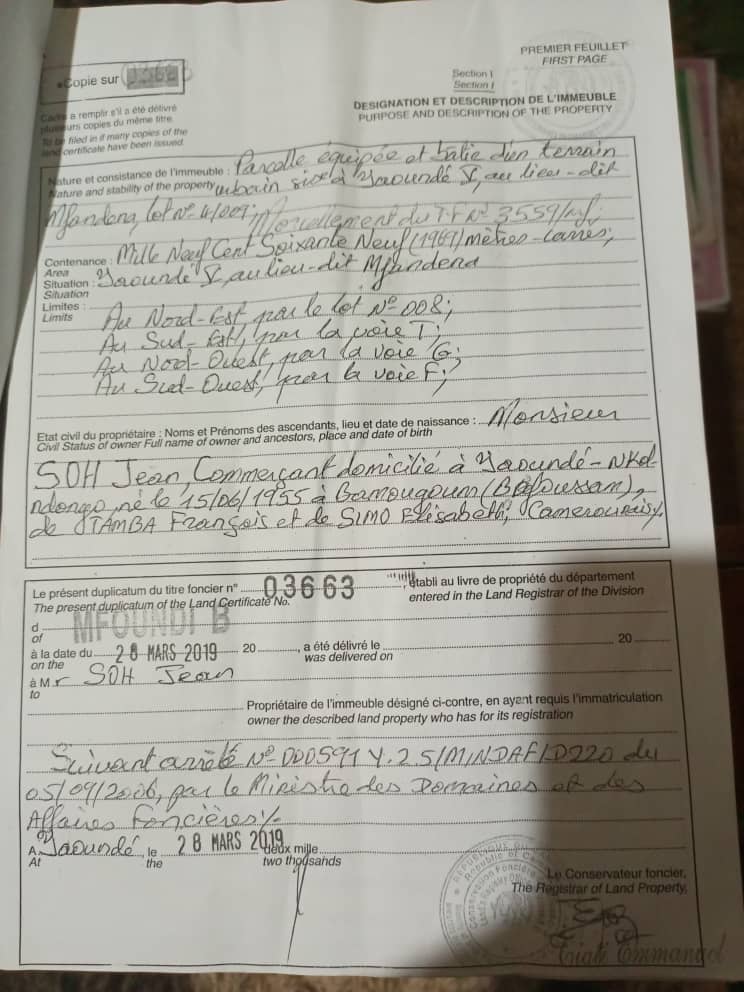 PREMIER FEUILLET
FIRST PAGE
Copie sur
Section 1
Section I
Cadre a remplir s'il a été délivré
plusieurs copies du même titre
To be filed in if many copies of the
land certificate have been issued
DESIGNATION ET DESCRIPTION DE L'IMMEUBLE
PURPOSE AND DESCRIPTION OF THE PROPERTY
Nature et consistance de l'immeuble : Parcelle équipée et batie d'en terrain
Nature and stability of the property urbain sise à Yaoundé V, au lieu-dit
Mfandena, Lot N° 4/009; Morcellement du T.F N° 3559/Mf;
Contenance : Mille Neuf Cent Soixante Neuf (1969) mètres-carrés;
Area
Situation : Yaoundé V, au lieu-dit Mfandena
Situation
Limites :
Limits
Au Nord-Est, par le lot N° 008;
Au Sud-Est, par la voie T;
Au Nord-Ouest, par la voie G;
Au Sud-Ouest, par la voie F;
Etat civil du propriétaire : Noms et Prénoms des ascendants, lieu et date de naissance : Monsieur
Civil Status of owner Full name of owner and ancestors, place and date of birth
SOH Jean, Commerçant domicilié à Yaoundé-NKol-
ndongo, né le 15/06/1955 à Bamougoum (Bafoussam),
de TAMBA François et de SIMO Elisabeth, Camerounais/.
Le présent duplicatum du titre foncier n° 03663, établi au livre de propriété du département
The present duplicatum of the Land Certificate No. entered in the Land Registrar of the Division
d MFOUNDI B
of
à la date du 28 MARS 2019 20 , a été délivré le 20
on the was delivered on
à Mr SOH Jean
to
Propriétaire de l'immeuble désigné ci-contre, en ayant requis l'immatriculation
owner the described land property who has for its registration
Suivant arrêté N° 000591 Y.2.5/MINDAF/D220 du
05/09/2006, par le Ministre des Domaines et des
Affaires Foncières/.
A Yaoundé, le 28 MARS 2019 deux mille
At the two thousands
Le Conservateur foncier,
The Registrar of Land Property,
Republic of
Conservation Foncière
Emmanuel